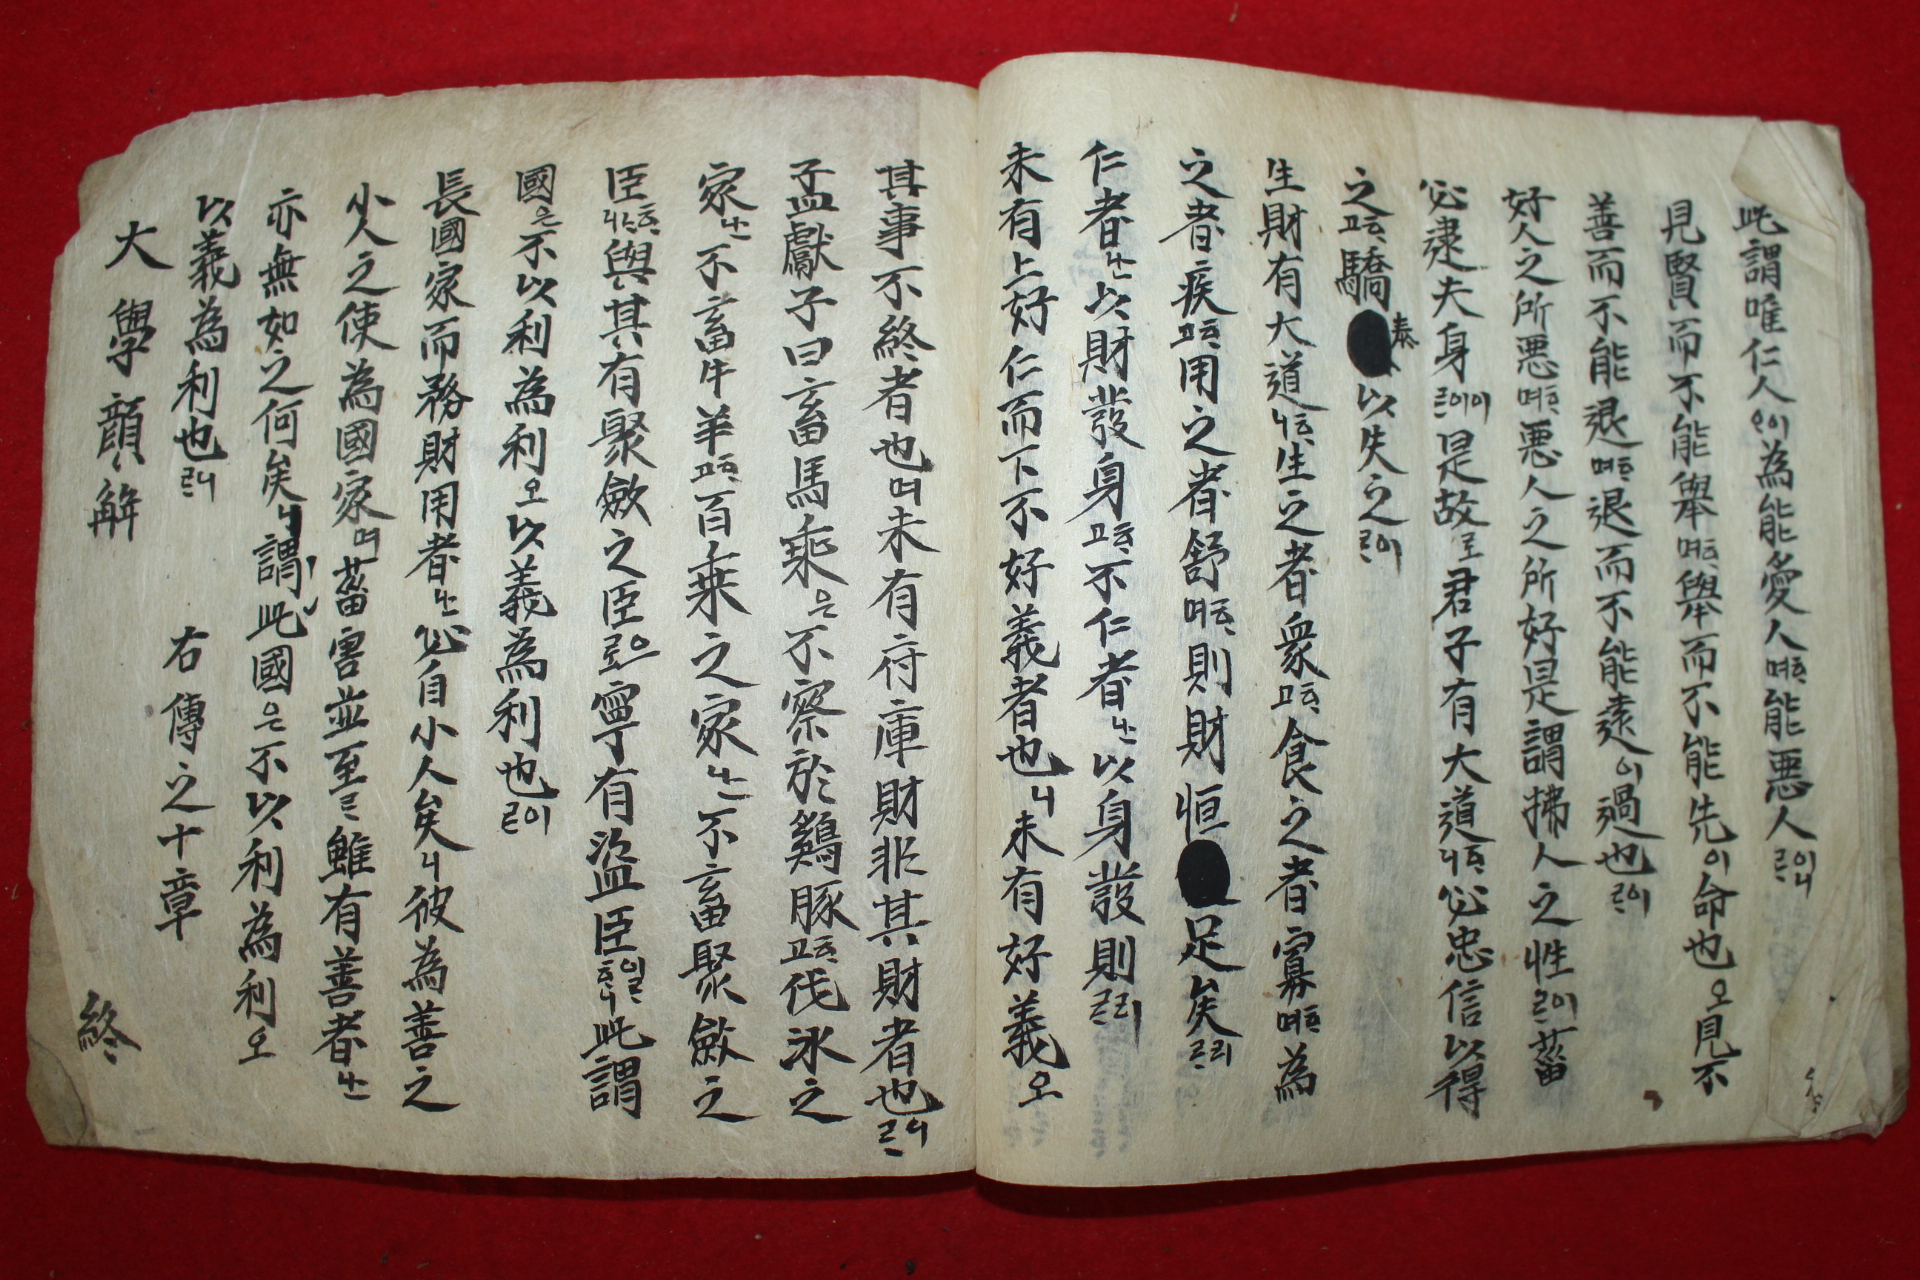 此謂唯仁人이아為能愛人ᄒᆞ며能惡人이니라
見賢而不能擧ᄒᆞ며擧而不能先이命也오見不
善而不能退ᄒᆞ며退而不能遠이過也ㅣ니라
好人之所惡ᄒᆞ며惡人之所好是謂拂人之性이라菑
必逮夫身이니라是故로君子有大道ᄒᆞ니必忠信以得
之ᄒᆞ고驕泰以失之니라
生財有大道ᄒᆞ니生之者衆ᄒᆞ고食之者寡ᄒᆞ며為
之者疾ᄒᆞ고用之者舒ᄒᆞ면則財恒足矣리라
仁者ᄂᆞᆫ以財發身ᄒᆞ고不仁者ᄂᆞᆫ以身發財니라
未有上好仁而下不好義者也니未有好義오
其事不終者也며未有府庫財非其財者也니라
孟獻子曰畜馬乘은不察於鷄豚ᄒᆞ고伐冰之
家ᄂᆞᆫ不畜牛羊ᄒᆞ고百乘之家ᄂᆞᆫ不畜聚斂之
臣ᄒᆞᄂᆞ니與其有聚斂之臣으로寧有盜臣이라ᄒᆞ니此謂
國은不以利為利오以義為利也ㅣ니라
長國家而務財用者ᄂᆞᆫ必自小人矣니彼為善之
小人之使為國家며菑害並至라雖有善者ᄂᆞᆫ
亦無如之何矣니謂此國은不以利為利오
以義為利也니라
右傳之十章
大學諺解
終